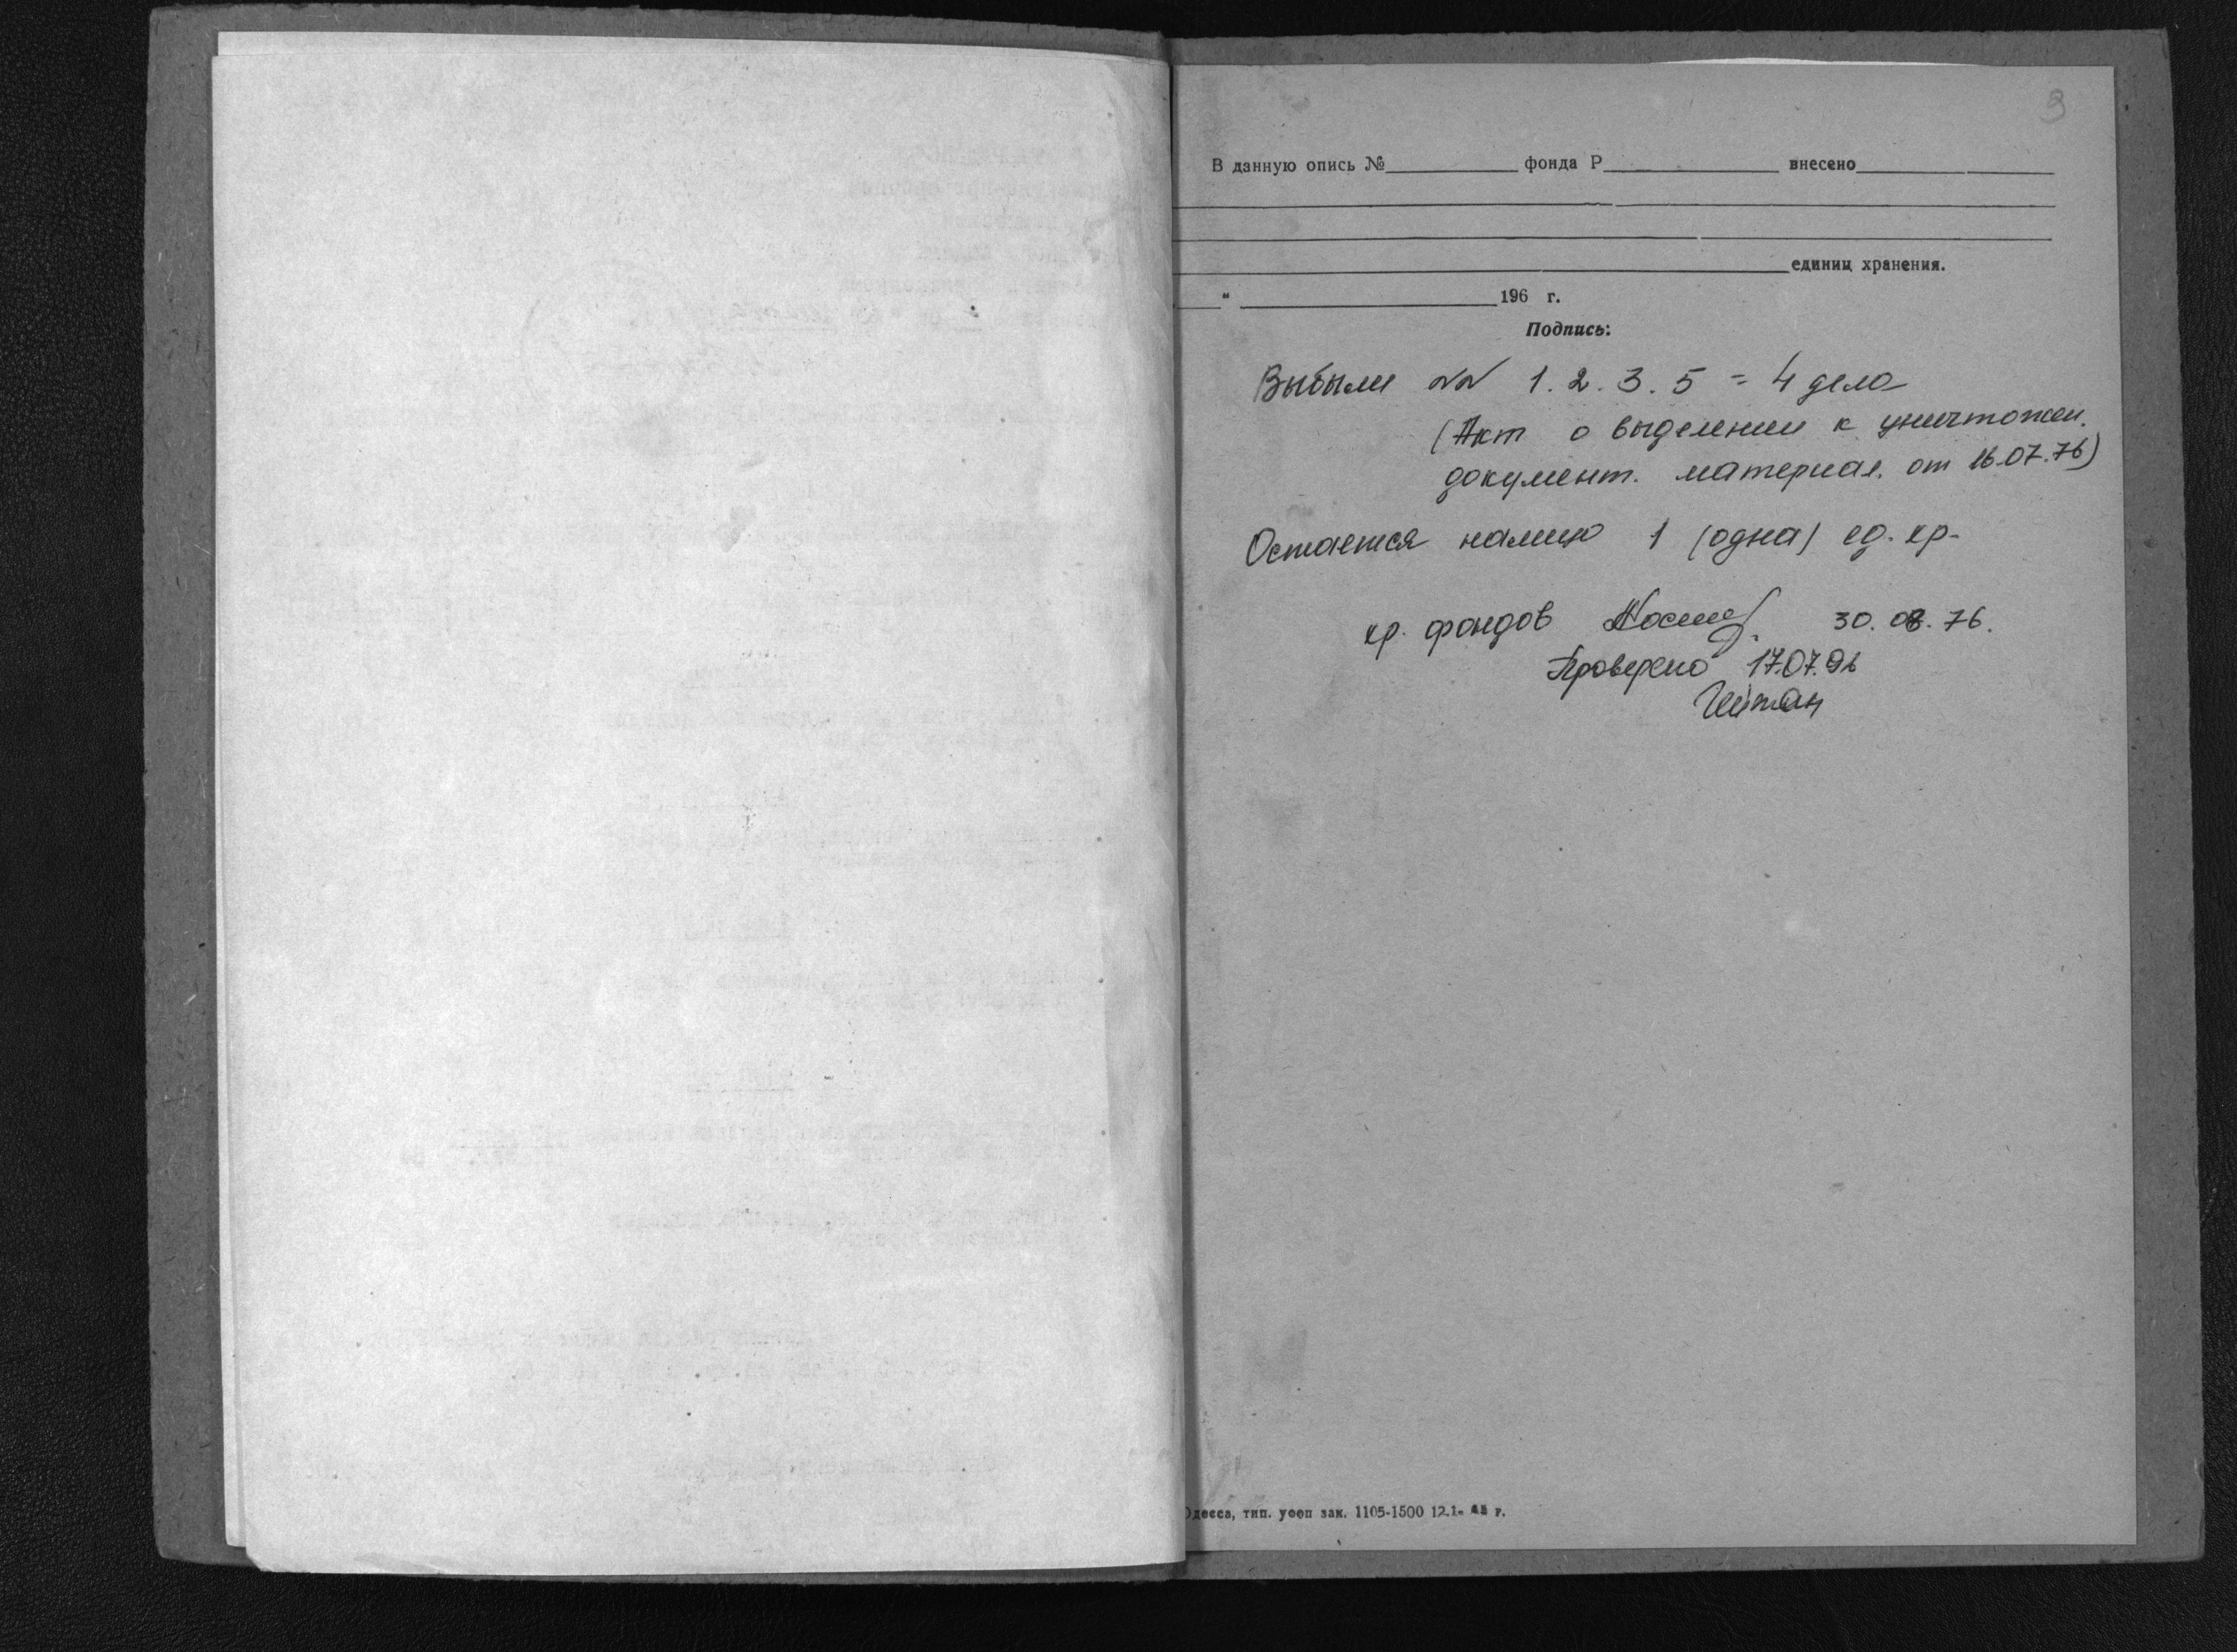 3
В данную опись № фонда Р внесено
единиц хранения.
" 196 г.
Подпись:
Выбыли №№ 1. 2. 3. 5 = 4 дела
(Акт о выделении к уничтожен.
документ. материал. от 16.07.76)
Остается налицо 1 (одна) ед. хр.
хр. фондов 30. 08. 76.
Проверено 17.07.96
Одесса, тип. уооп зак. 1105-1500 12.1- г.